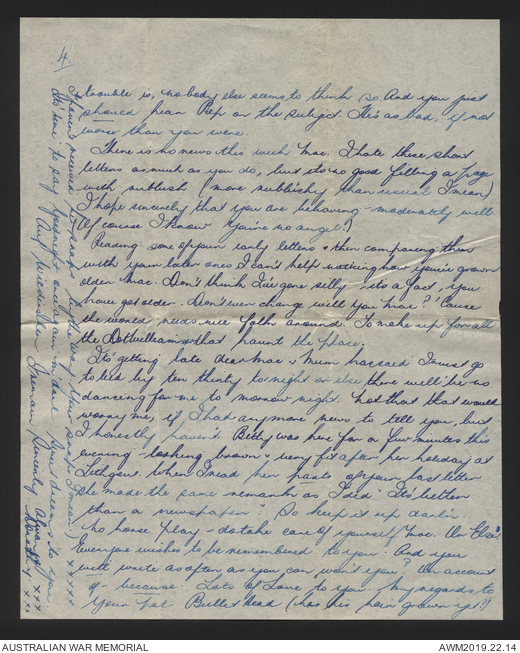 4/
trouble is, nobody else seems to think so. And you just
should hear Pep on the subject. He's as bad, if not
worse than you were.
There is no news this week Mac. I hate these short
letters as much as you do, but its no good filling a page
with rubbish (more rubbishy than usual I mean)
I hope sincerely that you are behaving - moderately well
Of course I know "You're no angel"!
Reading some of your early letters & then comparing them
with your later ones I can't help noticing how you've grown
older Mac. Don't think I've gone silly - its a fact, you
have got older. Don't ever change will you Mac? 'Cause
the world needs nice folks around. To make up for all
the Dot Williamses that haunt the place.
It's getting late dear Mac & Mum has said I must go
to bed by ten thirty to-night or else there will be no
dancing for me to-morrow night. Not that that would
worry me, if I had any more news to tell you, but
I honestly haven't. Betty was here for a few minutes this
evening - looking brown & very fit after her holiday at
When I read her parts of your last letter
she made the same remarks as I did. "It's better
than a newspaper". So keep it up darlin'.
No horse play - do take care of yourself Mac. Un Else's
Everyone wishes to be remembered to you. And you
will write as often as you can won't you? On account
of - because. Lots of Love to you. My regards to
Your Pal Bullet Head (has his hair grown yet?)
I haven't received by the way. (Your snaps I mean)
It's time to say goodnight once again Mac dear. Sweet dreams to you.
Auf Wiedersehen Sincerely Always
Dorothy xxx
xxxxx
xxx
AUSTRALIAN WAR MEMORIAL
AWM2019.22.14